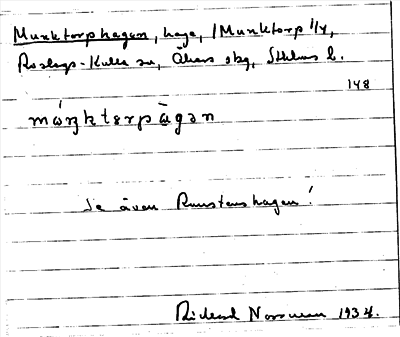 Munktorphagen, hage, /Munktorp 1/4,
Roslags-Kulla sn, Åkers skg, Sthlms l.
148
mùŋktərpàgən
Se även Runstenshagen!
Rickard Norrman 1934.